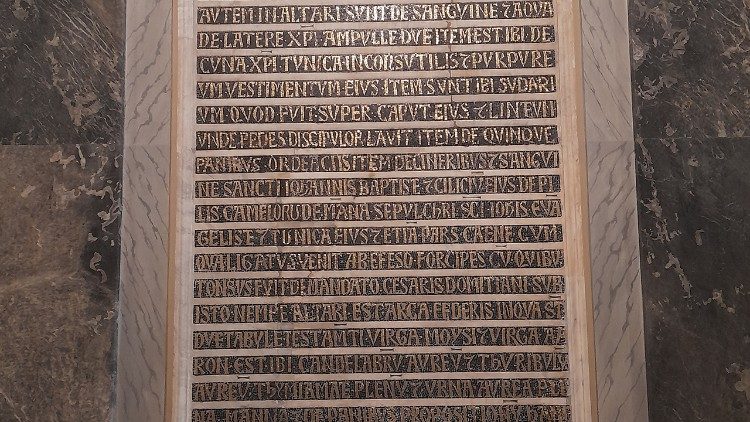 AVTEM IN ALTARI SVNT DE SANGVINE 7 AQVA
DE LATERE XPI AMPVLLE DVE ITEM EST IBI DE
CVNA XPI TVNICA INCONSVTILIS 7 PVRPVRE
VM VESTIMENTVM EIVS ITEM SVNT IBI SVDARI
VM QVOD FVIT SVPER CAPVT EIVS 7 LINTEVM
VNDE PEDES DISCIPVLOR LAVIT ITEM DE QVINQVE
PANIBVS ORDEACIIS ITEM DE CINERIBVS 7 SANGVI
NE SANCTI IOHANNIS BAPTISTE 7 CILICIV EIVS DE PI
LIS CAMELORV DE MANA SEPVLCHRI SCI IOHIS EVA
GELISTE 7 TVNICA EIVS 7 ETIA PARS CATENE CVM
QVA LIGATVS VENIT AB EFESO FORCIPES CV QVIBV
TONSVS FVIT DE MANDATO CESARIS DOMITIANI SVB
ISTO NEMPE ALTARI EST ARCA FEDERIS IN QVA ST
DVE TABVLE TESTAMTI VIRGA MOYSI 7 VIRGA AA
RON EST IBI CANDELABRV AVREV 7 THVRIBVLV
AVREV THYMIAMATE PLENV 7 VRNA AVREA PLE
NA MANNA 7 DE PANIBVS PROPOSITIONV